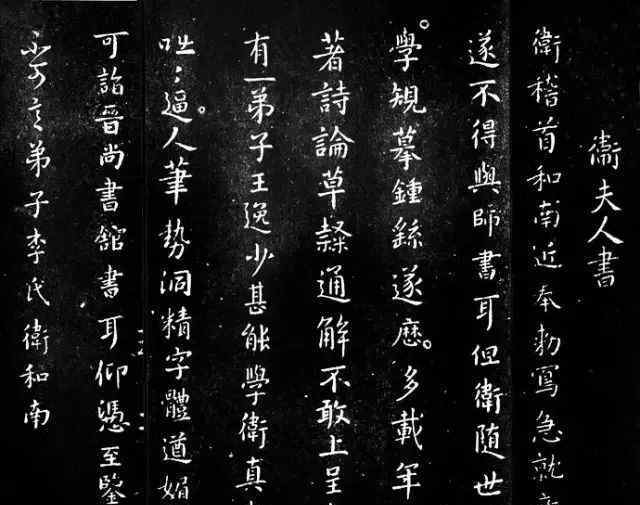 衞夫人書
衛稽首和南近奉勅寫急就章
遂不得與師書耳但衛随世
學規摹鍾繇遂歷多載年
著詩論草隸通解不敢上呈
有一弟子王逸少甚能學衛真
咄咄逼人筆勢洞精字體遒媚
可詣晉尚書館書耳仰憑至鑒
弟子李氏衛和南